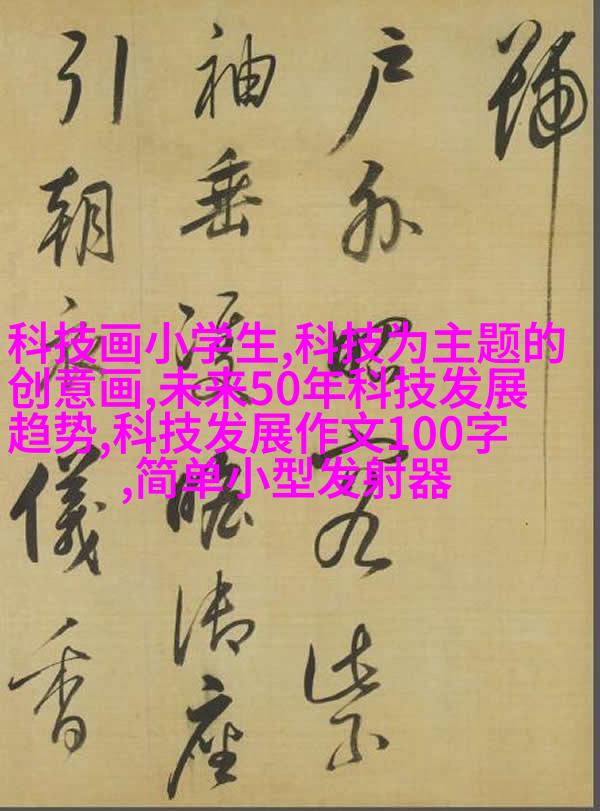 號
户外昭容紫
袖垂雙瞻御座
引朝儀香
科技画小学生,科技为主题的
创意画,未来50年科技发展
趋势,科技发展作文100字
,简单小型发射器